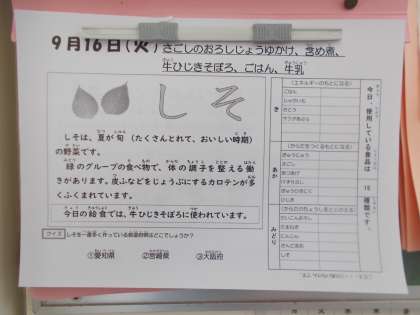 9月16日(火) さごしのおろしじょうゆかけ、含め煮、
牛ひじきそぼろ、ごはん、牛乳
しそ
しそは、夏が旬 (たくさんとれて、おいしい時期)
の野菜です。
緑のグループの食べ物で、体の調子を整える働
きがあります。皮ふなどをじょうぶにするカロテンが多
くふくまれています。
今日の給食では、牛ひじきそぼろに使われています。
クイズ しそを一番多く作っている都道府県はどこでしょうか?
①愛知県 ②宮崎県 ③大阪府
今日、使用している食品は 18 種類です。
き
(エネルギーのもとになる)
ごはん
じゃがいも
さとう
サラダあぶら
あか
(からだをつくるもとになる)
ぎゅうにゅう
さごし
ぎゅうにく
ひじき
みどり
だいこんおろし
たまねぎ
にんじん
しそ